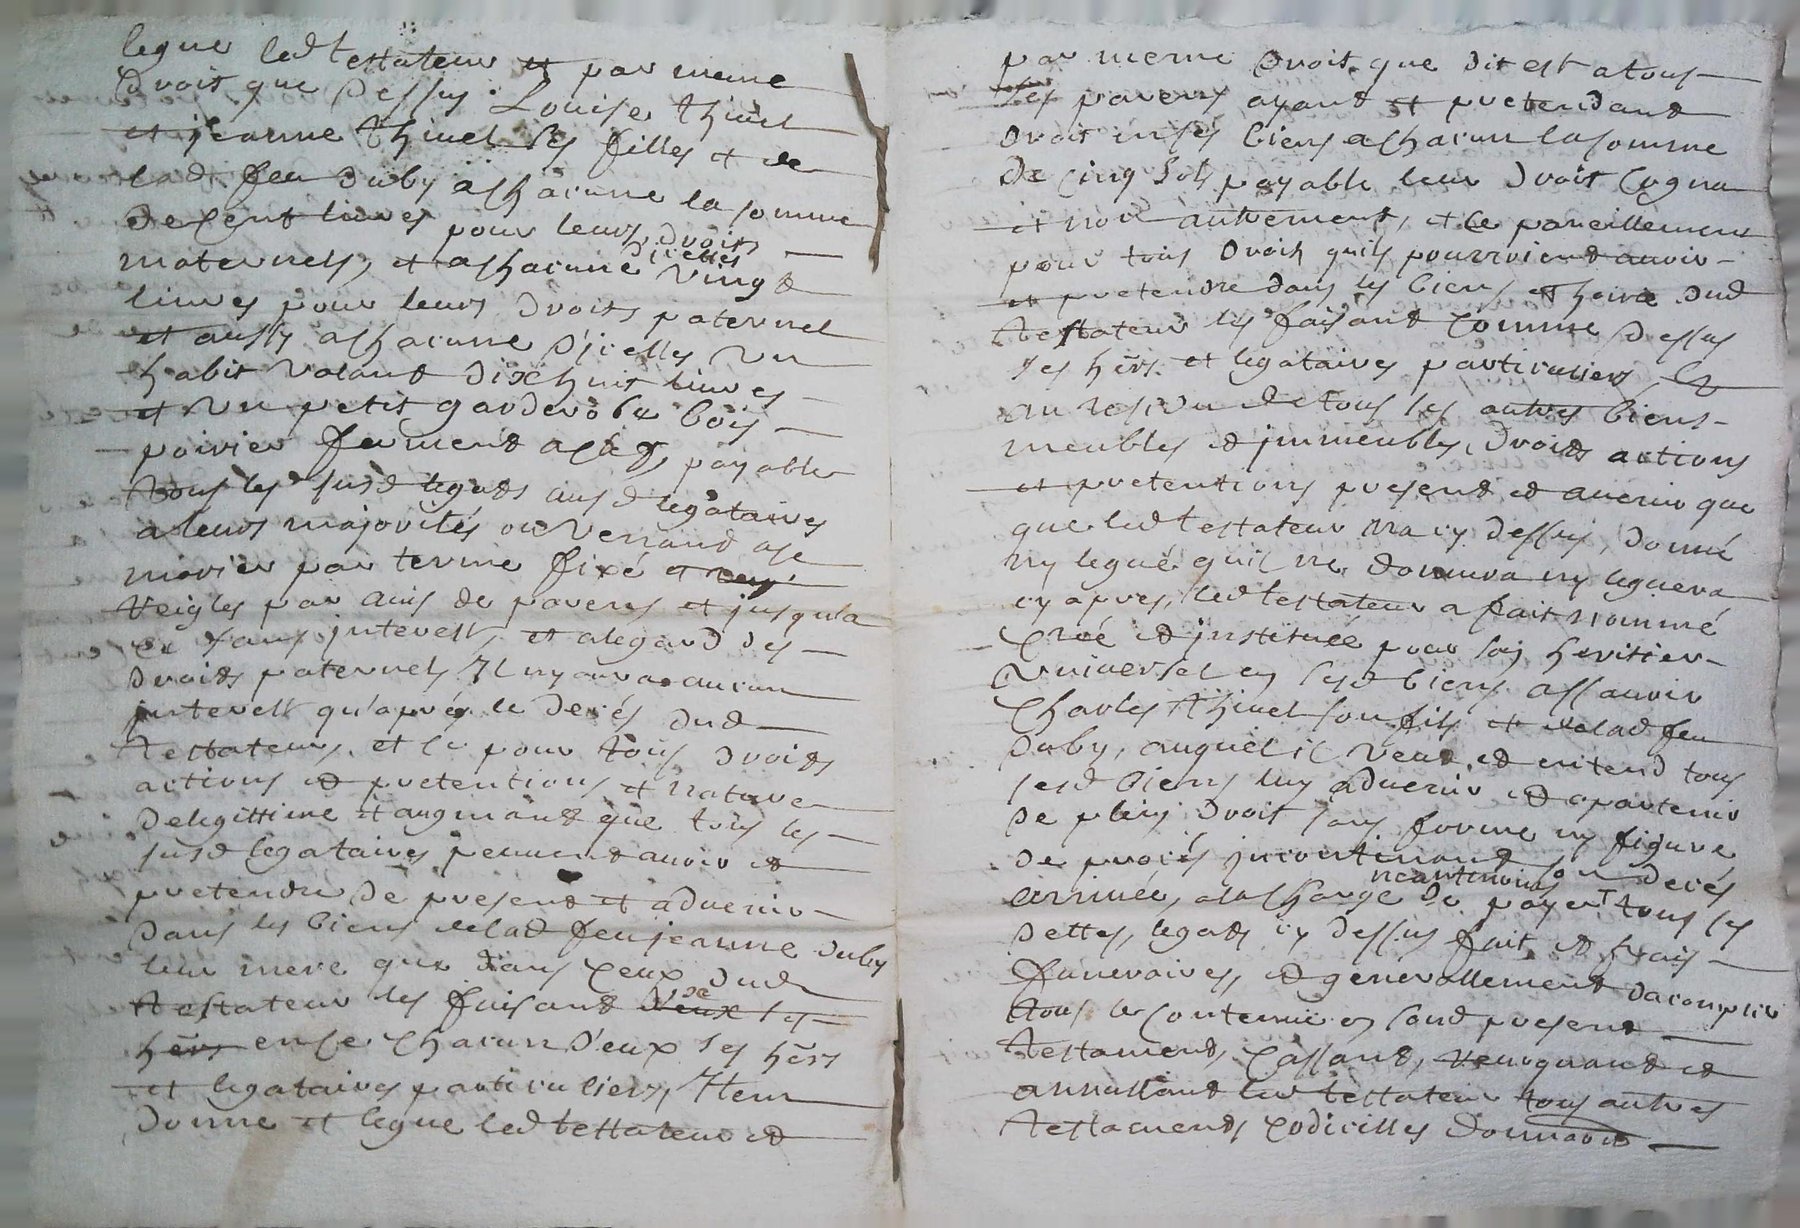 legue led testateur et par meme
droit que dessus Louise thiuel
et jeanne thiuel ses filles et de
lad feu duby a chacune la somme
de cent liures pour leurs droits
maternels, et a chacune d'icelles vingt
liures pour leurs droits paternel
et aussy a chacune d'icelles un
habit valant dixhuit liures
et un petit garderobe bois
poirier fermant a clef, payable
tous les susd legats ausd legataires
a leurs majorités ou venant a se
marier par terme fixé et
reigles par auis de parens et jusqu'a
ce sans interest, et alegard des
droits paternels Il ny aura aucun
interest qu'aprés le decés dud
testateur, et ce pour tous droits
actions et pretentions et nature
delegittime et augmant que tous les
susd legataires peuuent auoir et
pretendre de present et aduenir
dans les biens delad feu jeanne duby
leur mere que dans ceux dud
testateur les faisant ses
hers en ce chacun d'eux ses hers
et legataires particuliers, Item
donne et legue led testateur et
par meme droit que dit est a tous
ses parens ayant et pretendant
droit en ses biens a chacun la somme
de cinq sols payable leur droit
et non autrement, et ce pareillement
pour tous droits quils pourroient auoir
et pretendre dans les biens et hoirie dud
testateur les faisant comme dessus
ses hers et legataires particuliers, Et
au residu de tous ses autres biens
meubles et jmmeubles, droits actions
et pretentions present et auenir que
que led testateur na cy dessus, donné
ny legué quil ne donnera ny leguera
cy apres, led testateur a fait nommé
creé et jnstitué pour son heritier
vniuersel en sesd biens assauoir
Charles thiuel son fils et delad feu
duby, auquel il veut et entend tous
sesd biens luy aduenir et apartenir
de plein droit sans forme ny figure
de procés jncontinant son decés
arriueé, a la charge de payer neantmoins tous ses
dettes, legats cy dessus fait et frais
funeraires, et generallement dacomplir
tous le contenue en sond present
testament, cassant, reuoquant et
annullant led testateur tous autres
testaments codicilles donnaons